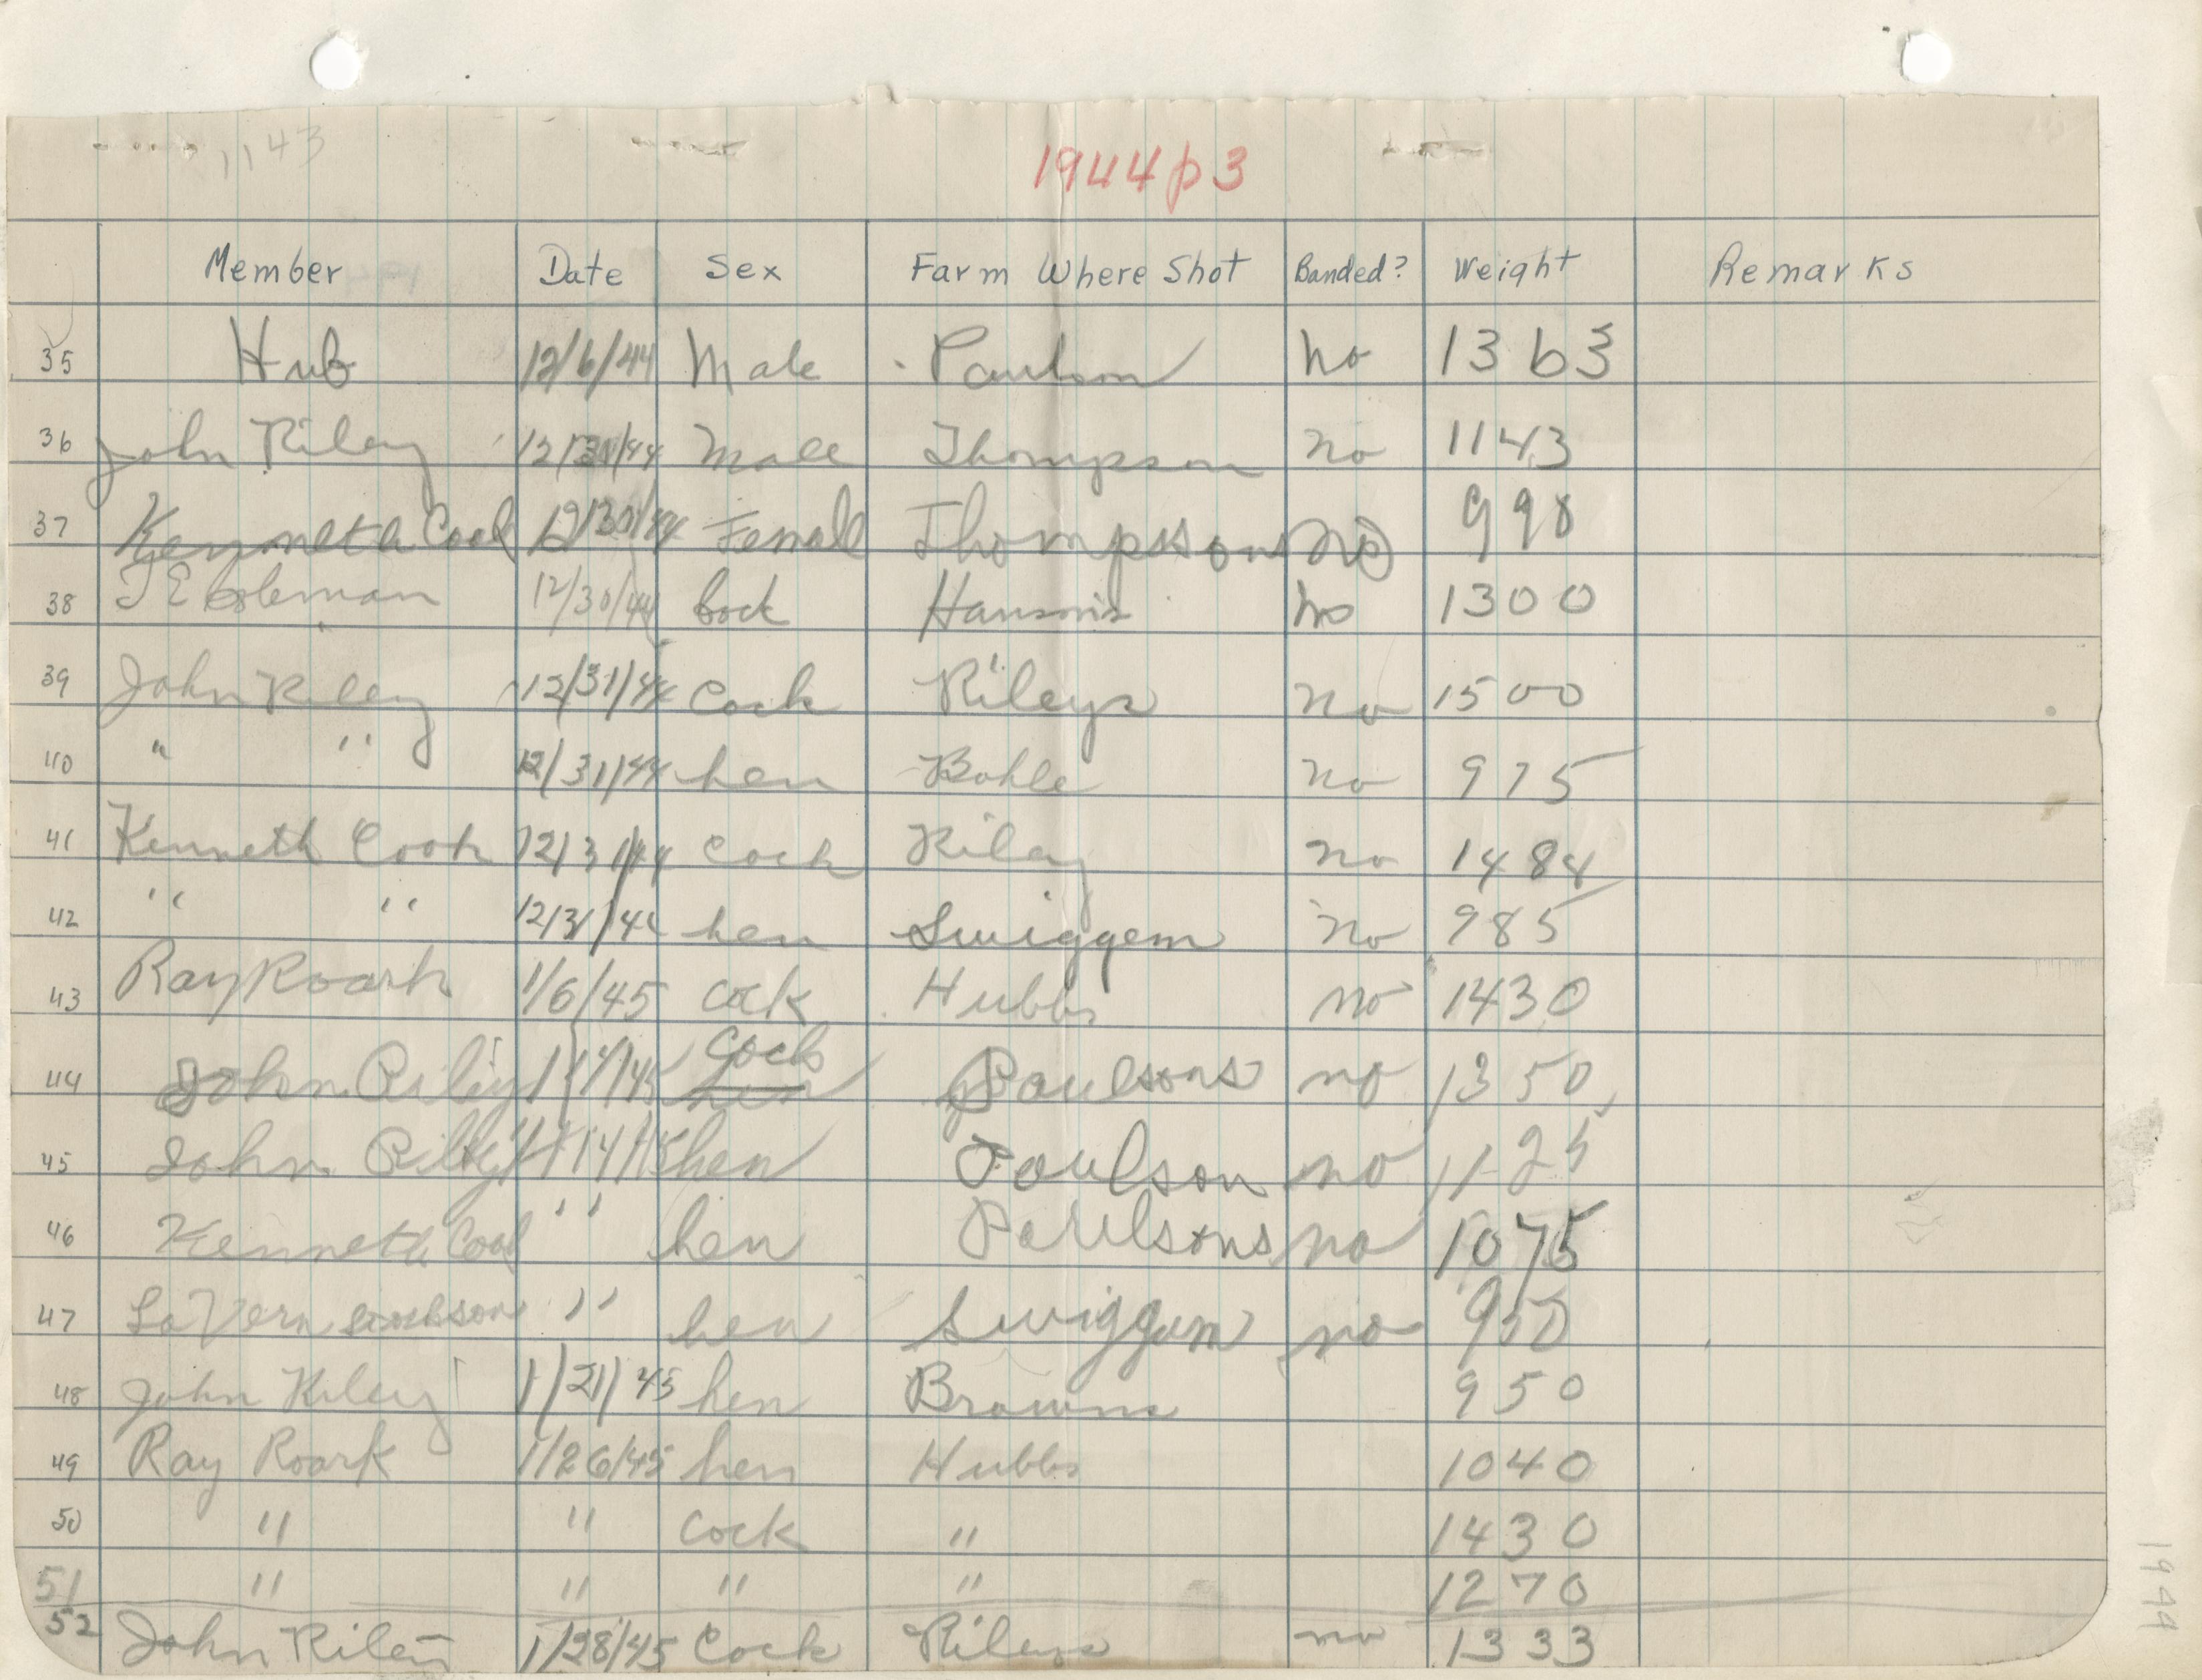 1143
1944 p 3
Member Date Sex Farm Where Shot Banded? Weight Remarks
35 Hub 12/6/44 Male Paulson no 1363
36 John Riley 12/30/44 Male Thompson no 1143
37 Kenneth Cook 12/30/44 Female Thompsons no 998
38 T E Coleman 12/30/44 Cock Hanson's no 1300
39 John Riley 12/31/44 Cock Rileys no 1500
40 " " 12/31/44 hen Bohle no 975
41 Kenneth Cook 12/31/44 Cock Riley no 1484
42 " " 12/31/44 hen Swiggem no 985
43 Ray Roark 1/6/45 Cock Hubbs no 1430
44 John Riley 1/14/45 Cock hen Paulsons no 1350
45 John Riley 1/14/45 hen Poulson no 1125
46 Kenneth Cook " hen Paulsons no 1075
47 LaVern " hen Swiggum no 950
48 John Riley 1/21/45 hen Browns 950
49 Ray Roark 1/26/45 hen Hubbs 1040
50 " " Cock " 1430
51 " " " " 1270
52 John Riley 1/28/45 Cock Rileys no 1333
1944